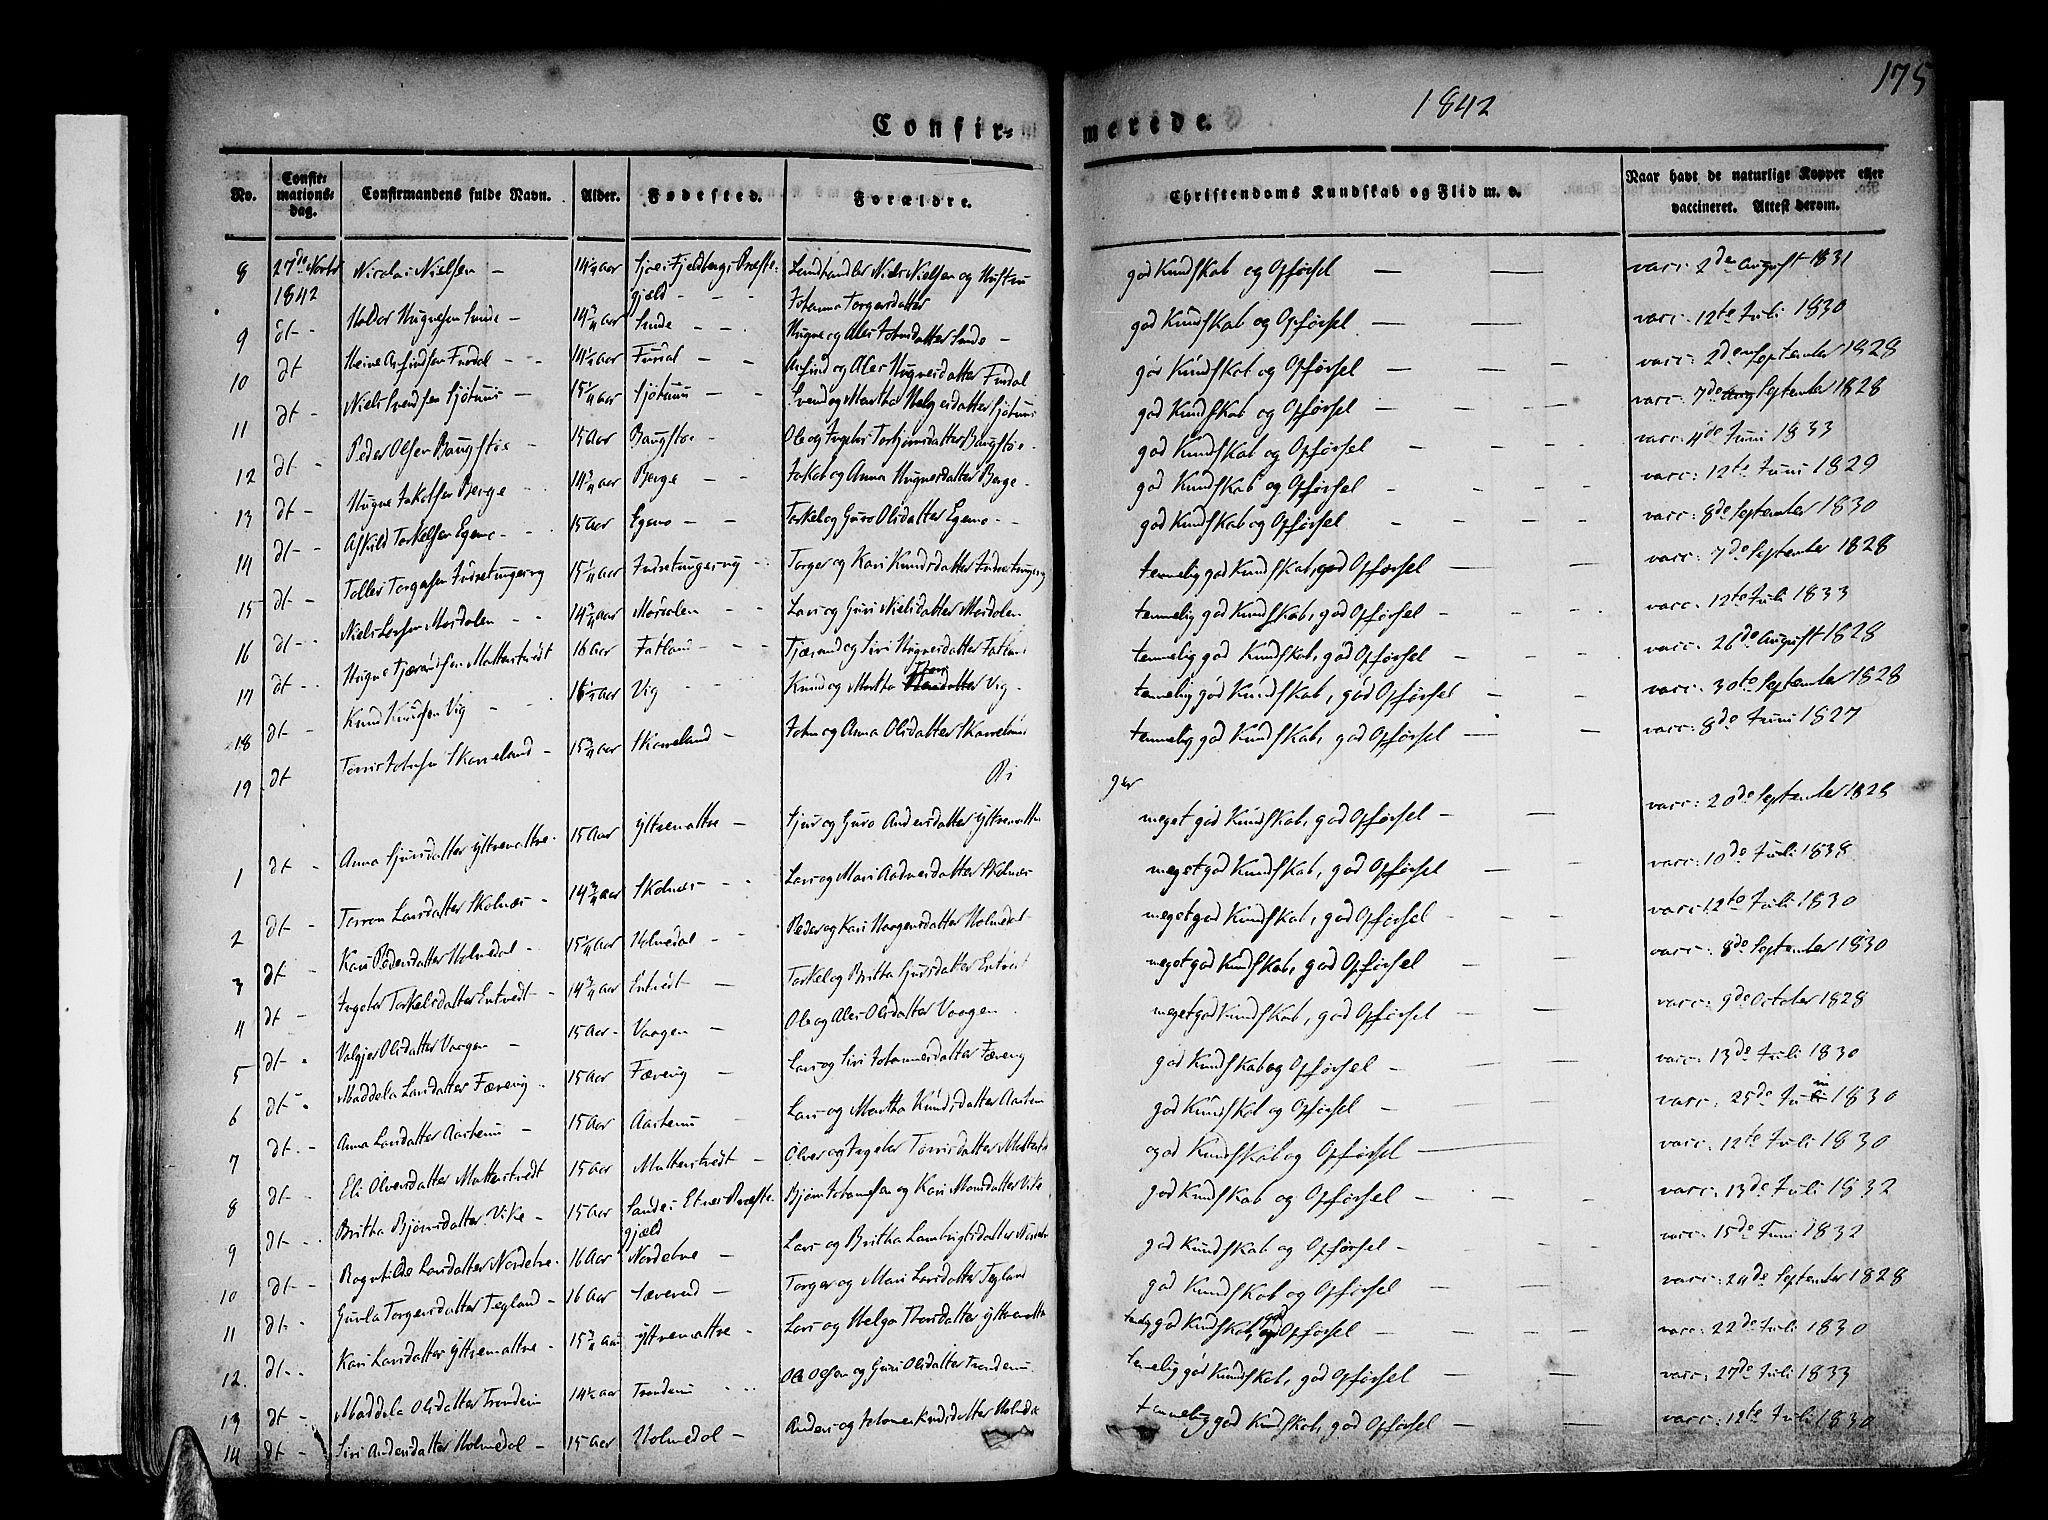 175
1842
Confir- merede.
No. Confirmations-dag. Confirmandens fulde Navn. Alder. Fødested. Forældre. Christendoms Kundskab og Flid m. v. Naar havt de naturlige Kopper eller vaccineret. Attest derom.
8 27de Novbr 1842 Nicolai Nielsen 14 1/4 Aar i Fjeldbergs Præste- gjæld Niels Nielsen og Johanna Torgersdatter god Kundskab og Opførsel vacc: 2den August 1831
9 dt Haldor Hugnesen Sunde 14 3/4 Aar Sunde Hugne og Ales Johnsdatter Sunde god Kundskab og Opførsel vacc: 12te Juli 1830
10 dt Heine Arfindsen Furdal Furdal Arfind og Ales Hugnesdatter Furdal god Kundskab og Opførsel vacc: 2den September 1828
11 dt Niels Svendsen 15 1/4 Aar Svend og Martha Helgesdatter god Kundskab og Opførsel vacc: 7de September 1828
12 dt Peder Olsen Baugstøe 15 Aar Baugstøe Ole og Ingeber Torbjørnsdatter Baugstøe god Kundskab og Opførsel vacc: 4de Juni 1833
13 dt Hugne Jakobsen Berge 14 3/4 Aar Berge Jakob og Anna Hugnesdatter Berge god Kundskab og Opførsel vacc: 12te Juni 1829
14 dt Askild Torkelsen Egemo 15 Aar Egemo Torkel og Guro Olsdatter Egemo god Kundskab og Opførsel vacc: 8de September 1830
15 dt Tollev Torgersen 15 1/4 Aar Torger og Kari Knudsdatter temmelig god Kundskab, god Opførsel vacc: 7de September 1828
16 dt Niels Larsen Mosdalen 14 3/4 Aar Mosdalen Lars og Guri Nielsdatter Mosdalen temmelig god Kundskab, god Opførsel vacc: 12te Juli 1833
17 dt Hugne Tjærandsen Matterstvedt 16 Aar Fatland Tjærand og Siri Hugnesdatter Fatland temmelig god Kundskab, god Opførsel vacc: 26de August 1828
18 dt Knud Knudsen Vig Vig Knud og Martha Vig temmelig god Kundskab, god Opførsel vacc: 30te September 1828
19 dt Tørris Johnsen Skorreland 15 3/4 Aar Skorreland John og Anna Olsdatter Skorreland temmelig god Kundskab, god Opførsel vacc: 8de Juni 1827
Pi ger
1 dt Anna Sjursdatter Yttremattre 15 Aar Yttremattre Sjur og Guro Andersdatter Yttremattre meget god Kundskab, god Opførsel vacc: 20de September 1828
2 dt Torron Larsdatter Skolnæs 14 3/4 Aar Skolnæs Lars og Mari Aadnesdatter Skolnæs meget god Kundskab, god Opførsel vacc: 10de Juli 1838
3 dt Kari Pedersdatter Holmedal 15 1/4 Aar Holmedal Peder og Kari Holmedal meget god Kundskab, god Opførsel vacc: 12te Juli 1830
4 dt Ingeber Torkelsdatter Entvedt 14 3/4 Aar Entvedt Torkel og Britta Entvedt meget god Kundskab, god Opførsel vacc: 8de September 1830
5 dt Valgjer Olsdatter Vaagen 15 Aar Vaagen Ole og Ales Olsdatter Vaagen meget god Kundskab, god Opførsel vacc: 9de October 1828
6 dt Maddela Larsdatter Færevig 15 Aar Færevig Lars og Siri Johannesdatter Færevig god Kundskab og Opførsel vacc: 13de Juli 1830
7 dt Anna Larsdatter 15 Aar Lars og Martha Knudsdatter god Kundskab og Opførsel vacc: 25de Juni 1830
8 dt Eli Olversdatter Matterstvedt 15 Aar Matterstvedt Olver og Ingeber Tørrisdatter god Kundskab og Opførsel vacc: 12te Juli 1830
9 dt Britha Bjørnsdatter Vike 15 Aar Sande i Etnes Præste- gjæld Bjørn Johannesen og Kari Monsdatter Vike god Kundskab og Opførsel vacc: 13de Juli 1832
10 dt Ragnhilde Larsdatter Nordetve 16 Aar Nordetve Lars og Britha god Kundskab og Opførsel vacc: 15de Juni 1832
11 dt Gunla Torgersdatter Tegland 16 Aar Særevad Torger og Mari Larsdatter Tegland god Kundskab og Opførsel vacc: 24de September 1828
12 dt Kari Larsdatter Yttremattre 15 3/4 Aar Yttremattre Lars og Helga Thorsdatter Yttremattre god Kundskab, god Opførsel vacc: 22de Juli 1830
13 dt Maddela Olsdatter 14 1/2 Aar Ole Olsen og Guri Olsdatter temmelig god Kundskab, god Opførsel vacc: 27de Juli 1833
14 dt Siri Andersdatter Holmedal 15 Aar Holmedal Anders og Knudsdatter Holmedal temmelig god Kundskab, god Opførsel vacc: 12te Juli 1830